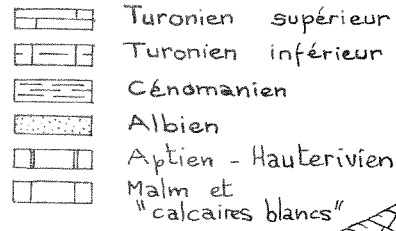 Turonien supérieur
Turonien inférieur
Cénomanien
Albien
Aptien - Hauterivien
Malm et
"calcaires blancs"